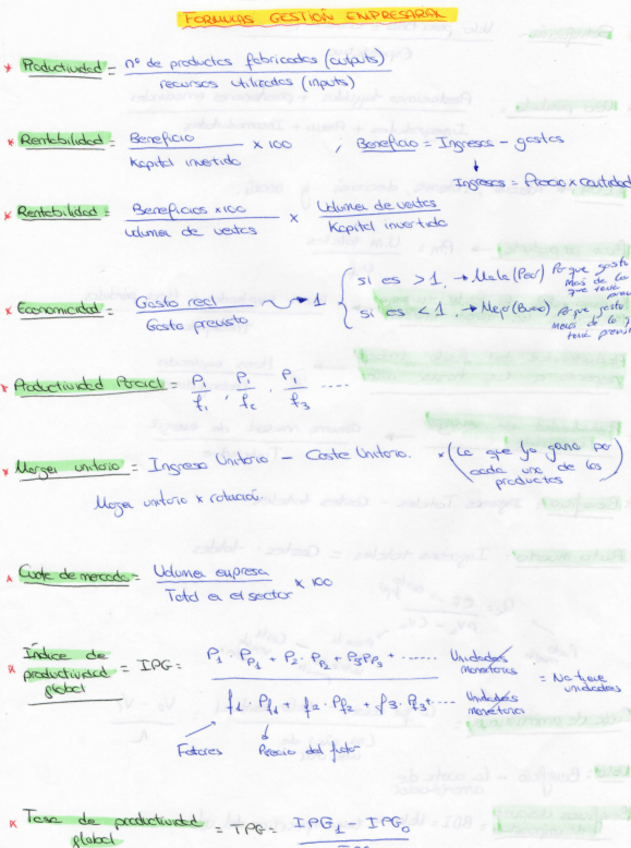 FORMULAS GESTIÓN EMPRESARIAL
* Productividad = nº de productos fabricados (outputs) / recursos utilizados (inputs)
* Rentabilidad = Beneficio / Kapital invertido x 100 , Beneficio = Ingresos - gastos
Ingresos = Precio x cantidad
* Rentabilidad = Beneficios x100 / Volumen de ventas x Volumen de ventas / Kapital invertido
* Economicidad = Gasto real / Gasto previsto → 1 { si es > 1, → Malo (Peor) Porque gasto más de lo que tenía
si es < 1, → Mejor (Bueno) Porque gasto menos de lo tenía
* Productividad Parcial = P1/f1, P1/f2, P1/f3 ....
* Margen unitario = Ingreso Unitario - Coste Unitario. * (Lo que yo gano por cada uno de los productos)
Margen unitario x rotación.
* Cuota de mercado = Volumen empresa / Total en el sector x 100
* Índice de productividad global = IPG = P1 · Pp1 + P2 · Pp2 + P3 Pp3 + ...... Unidades monetarias / f1 · Pf1 + f2 · Pf2 + f3 · Pf3 + .... Unidades monetarias = No tiene unidades
Factores Precio del factor
* Tasa de productividad global = TPG = IPG1 - IPG0